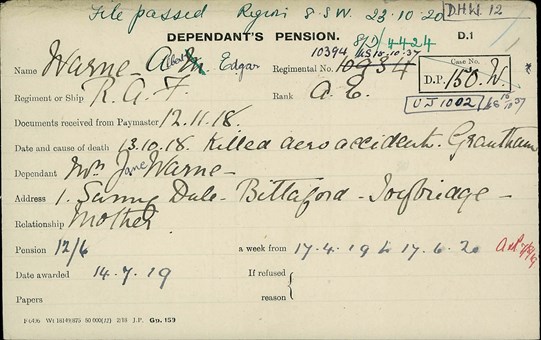 File passed Region S.S.W. 23.10.20 D.H.W. 12
DEPENDANT'S PENSION. 8/D/4424 D.1
10394
Name Warne - A Albert Edgar Regimental No. 10934 Case No.
D.P. 150.W
Regiment or Ship R.A.F. Rank A.C.
UJ1002
Documents received from Paymaster 12.11.18.
Date and cause of death 13.10.18. Killed aero accident. Grantham
Dependant Mrs Jane Warne -
Address 1. Sunny Dale - Bittaford - Ivybridge -
Relationship Mother
Pension 12/6 a week from 17.4.19 to 17.6.20
Date awarded 14.7.19 If refused
Papers reason
50 000(11) 2/18 J.P. Gp. 159